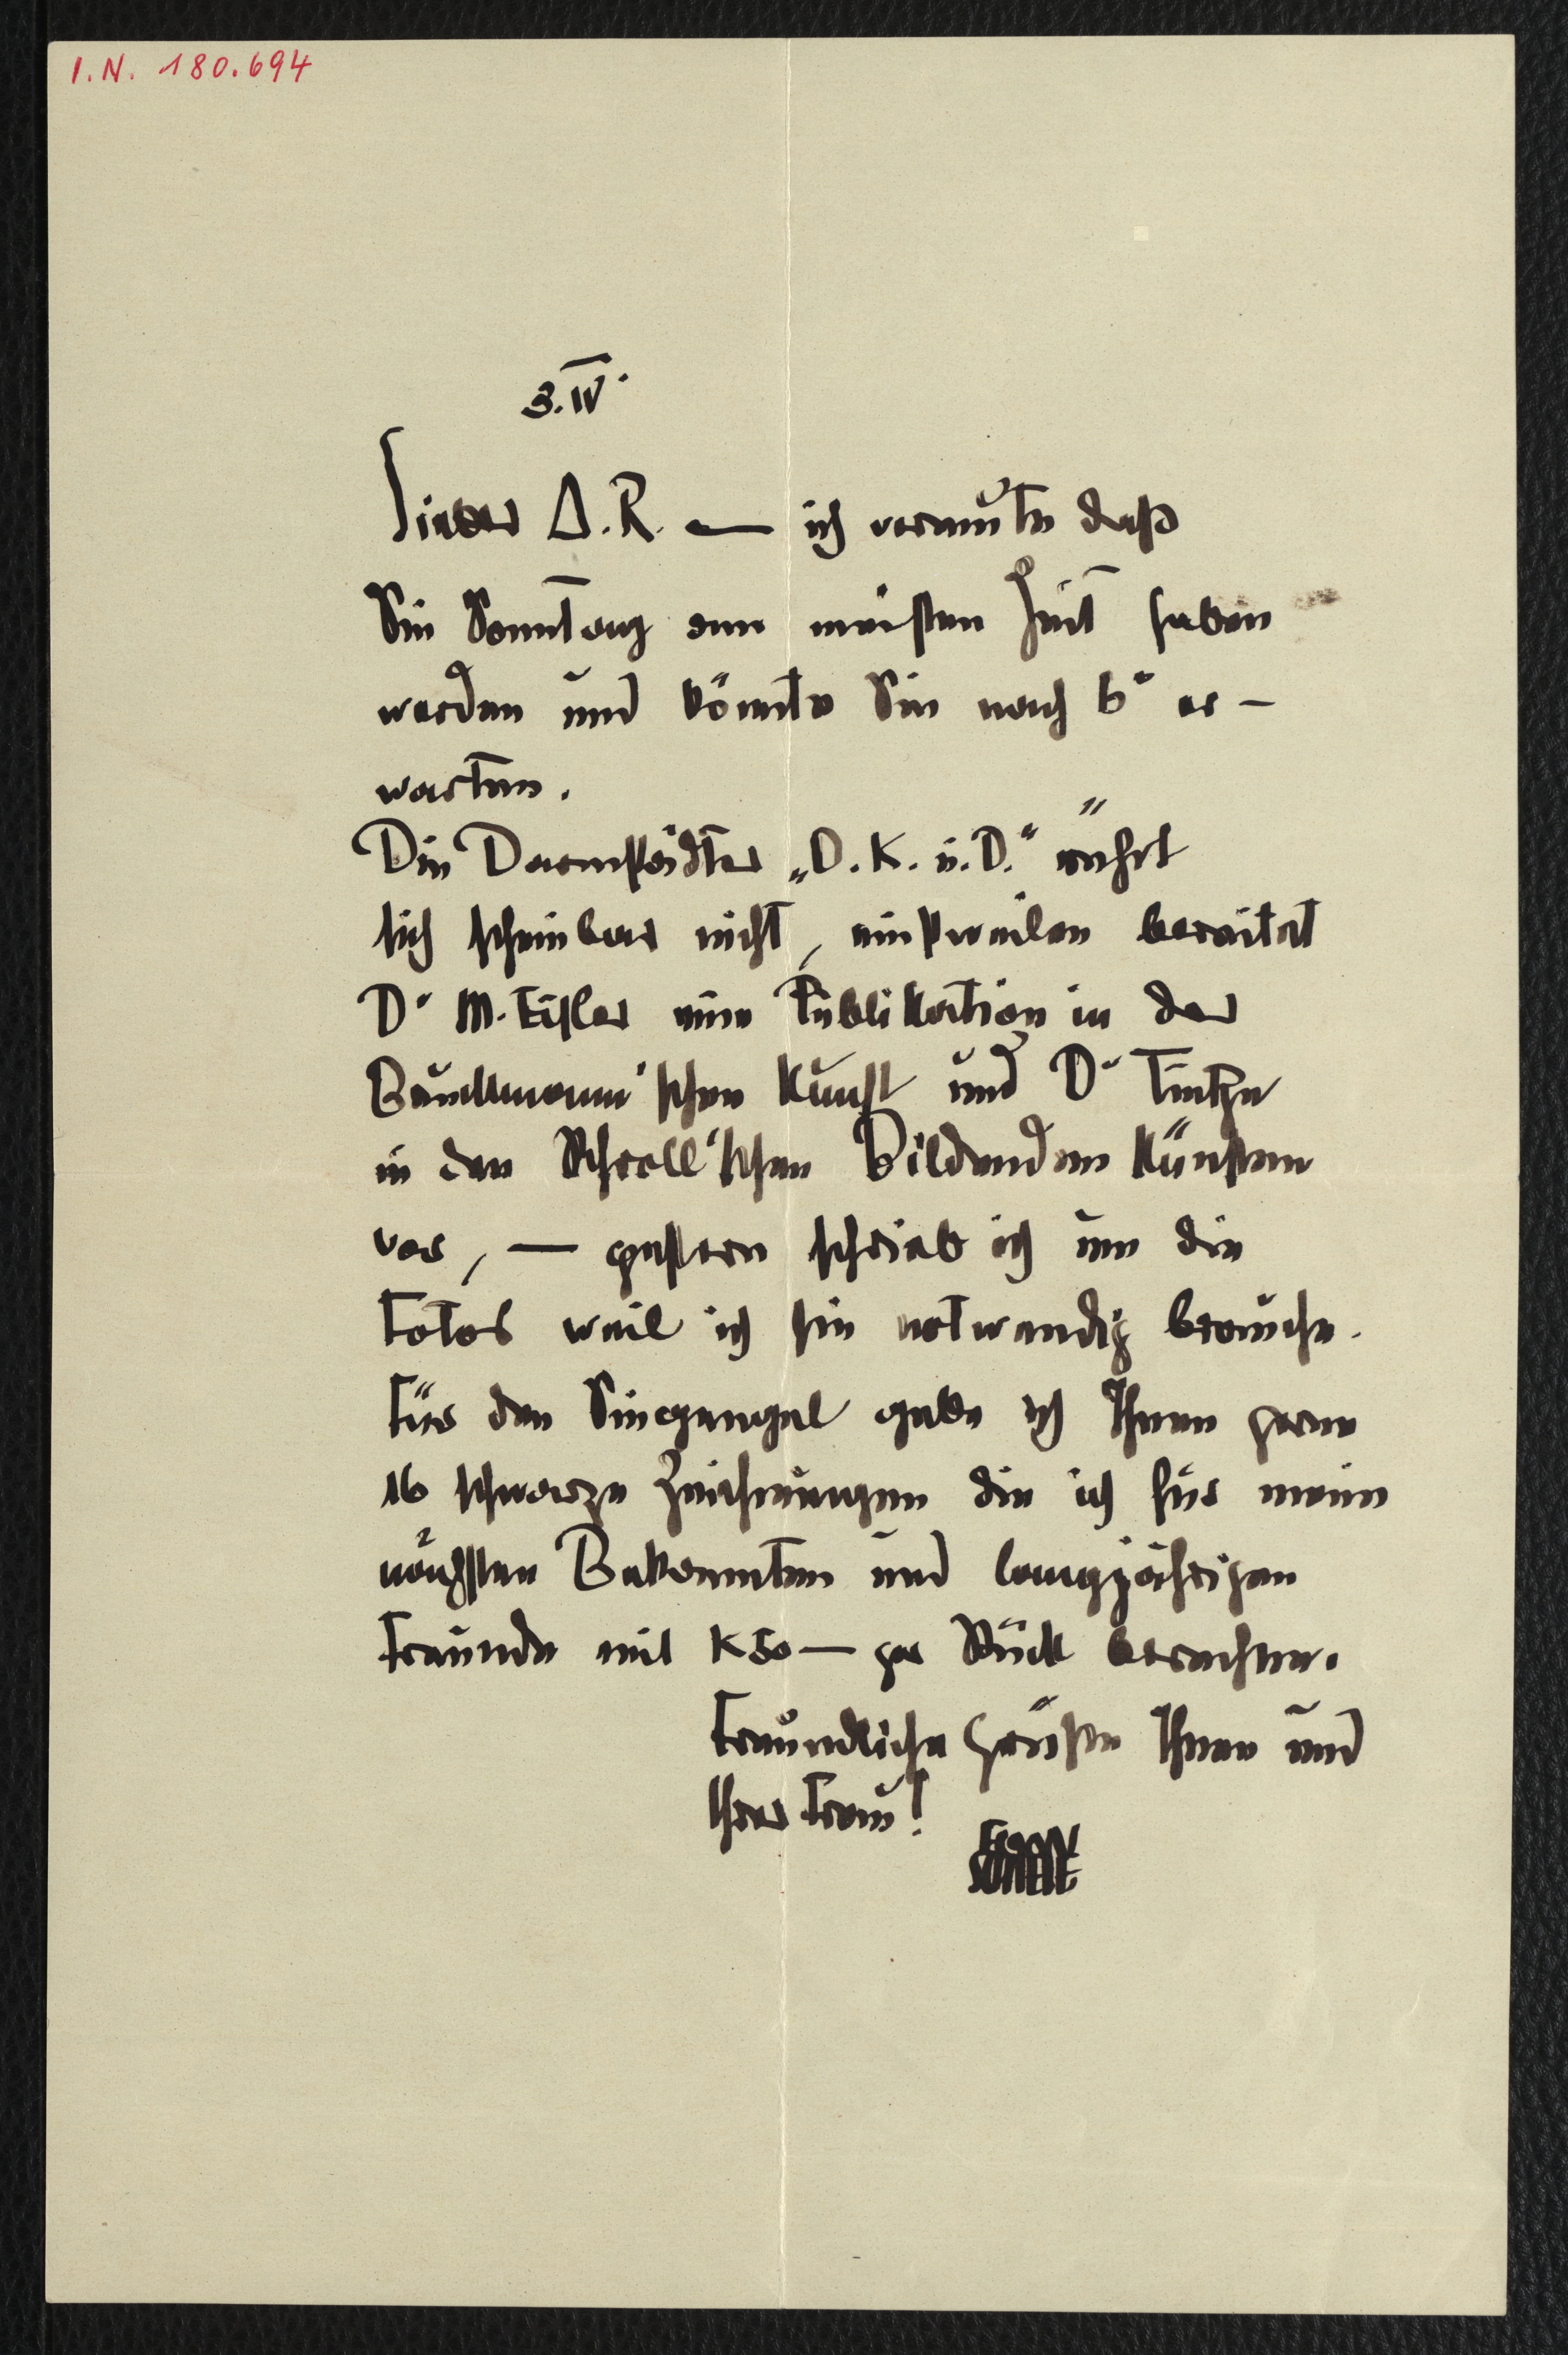 I.N. 180.694
3.IV.
Lieber A.R. — ich vermute daß
Sie Sonntag am meisten Zeit haben
werden und könnte Sie nach 6h er-
warten.
Die Darmstädter „D.K.u.D.“ rührt
sich scheinbar nicht, einstweilen bereitet
Dr M. Eisler eine Publikation in der
Bruckmann'schen Kunst und Dr Tietze
in den Schroll'schen Bildenden Künsten
vor, — gestern schrieb ich um die
Fotos weil ich sie notwendig brauche.
Für den gebe ich Ihnen gerne
16 schwarze Zeichnungen die ich für meine
nächsten Bekannten und langjährigen
Freunde mit K 50— per Stück berechne.
Freundliche Grüße Ihnen und
Ihrer Frau!
EGON
SCHIELE